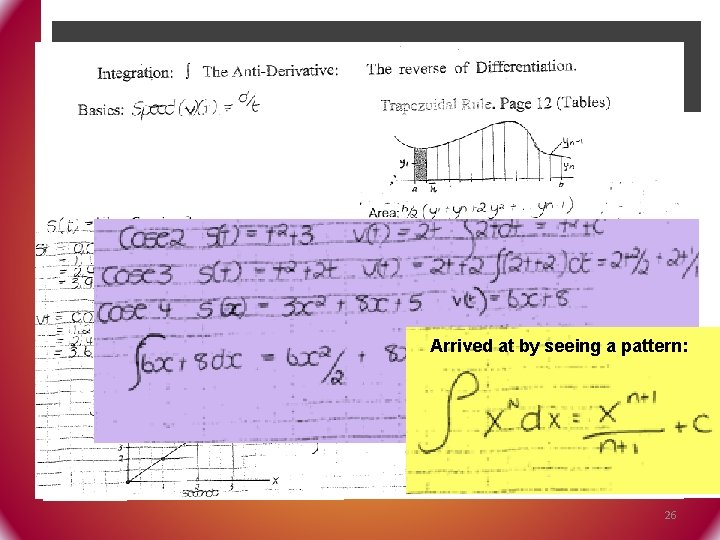 Integration: ∫ The Anti-Derivative: The reverse of Differentiation.
Basics: Speed (v)(t) = d/t
Trapezuidal Rule. Page 12 (Tables)
yn-1
y1
yn
a h b
Area: h/2 (y1 + yn + 2y2 + ... yn-1)
S(t) =
Case 2 S(t) = t²+3 v(t) = 2t ∫2tdt = t²+C
Case 3 s(t) = t²+2t v(t) = 2t+2 ∫(2t+2)dt = 2t²/2 + 2t/1
Case 4 S(x) = 3x² + 8x + 5 v(t) = 6x+8
∫6x + 8dx = 6x²/2 + 8x
Arrived at by seeing a pattern:
∫ x^N dx = x^n+1 / n+1 + C
x
26